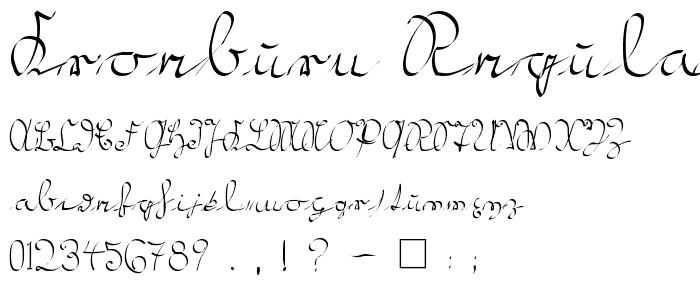 Regula
ABCDEFGHIJKLMNOPQRSTUVWXYZ
abcdefghijklmnopqrstuvwxyz
0123456789 . , ! ? — □ : ;